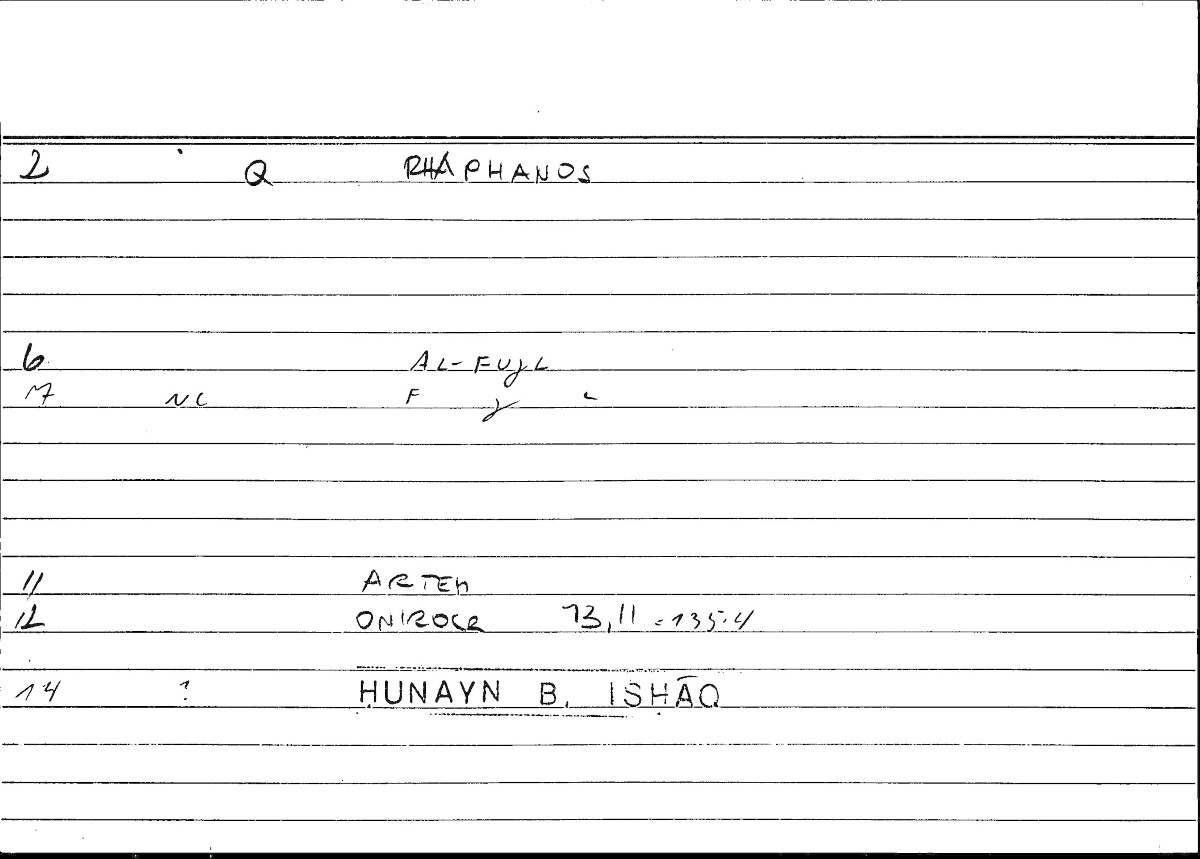 2 Q RHAPHANOS
6 AL-FUJL
M NC F J L
11 ARTEM
12 ONIROCR 73,11 = 135.4
14 ? ḤUNAYN B. ISḤĀQ